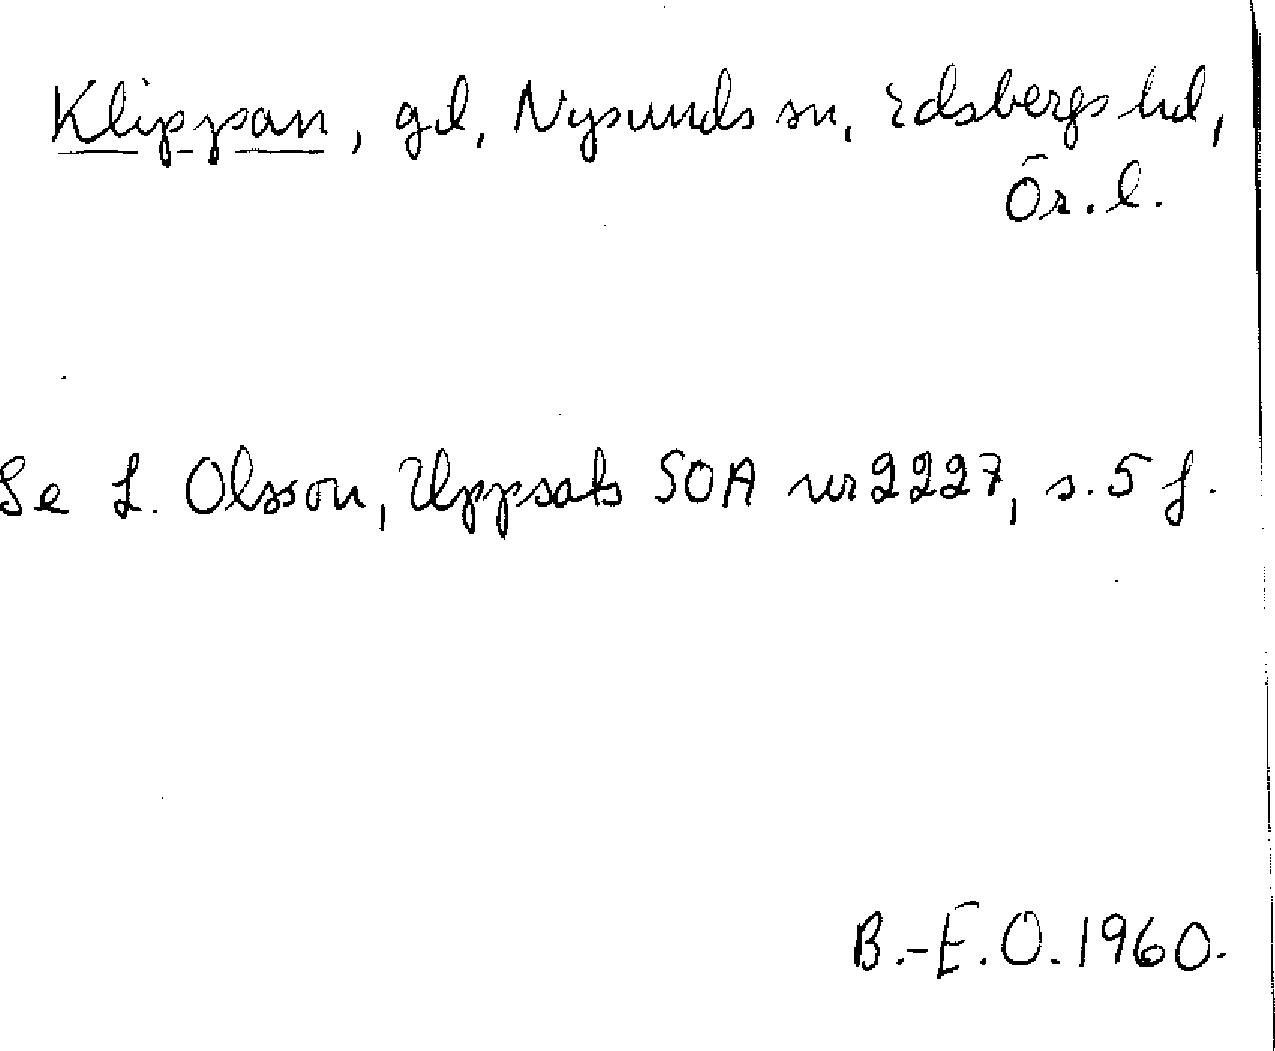 Klippan, gd, Nysunds sn, Edsbergs hd,
Ör. l.
Se L. Olsson, Uppsats SOA nr 2227, s. 5 f.
B.-E. O. 1960.